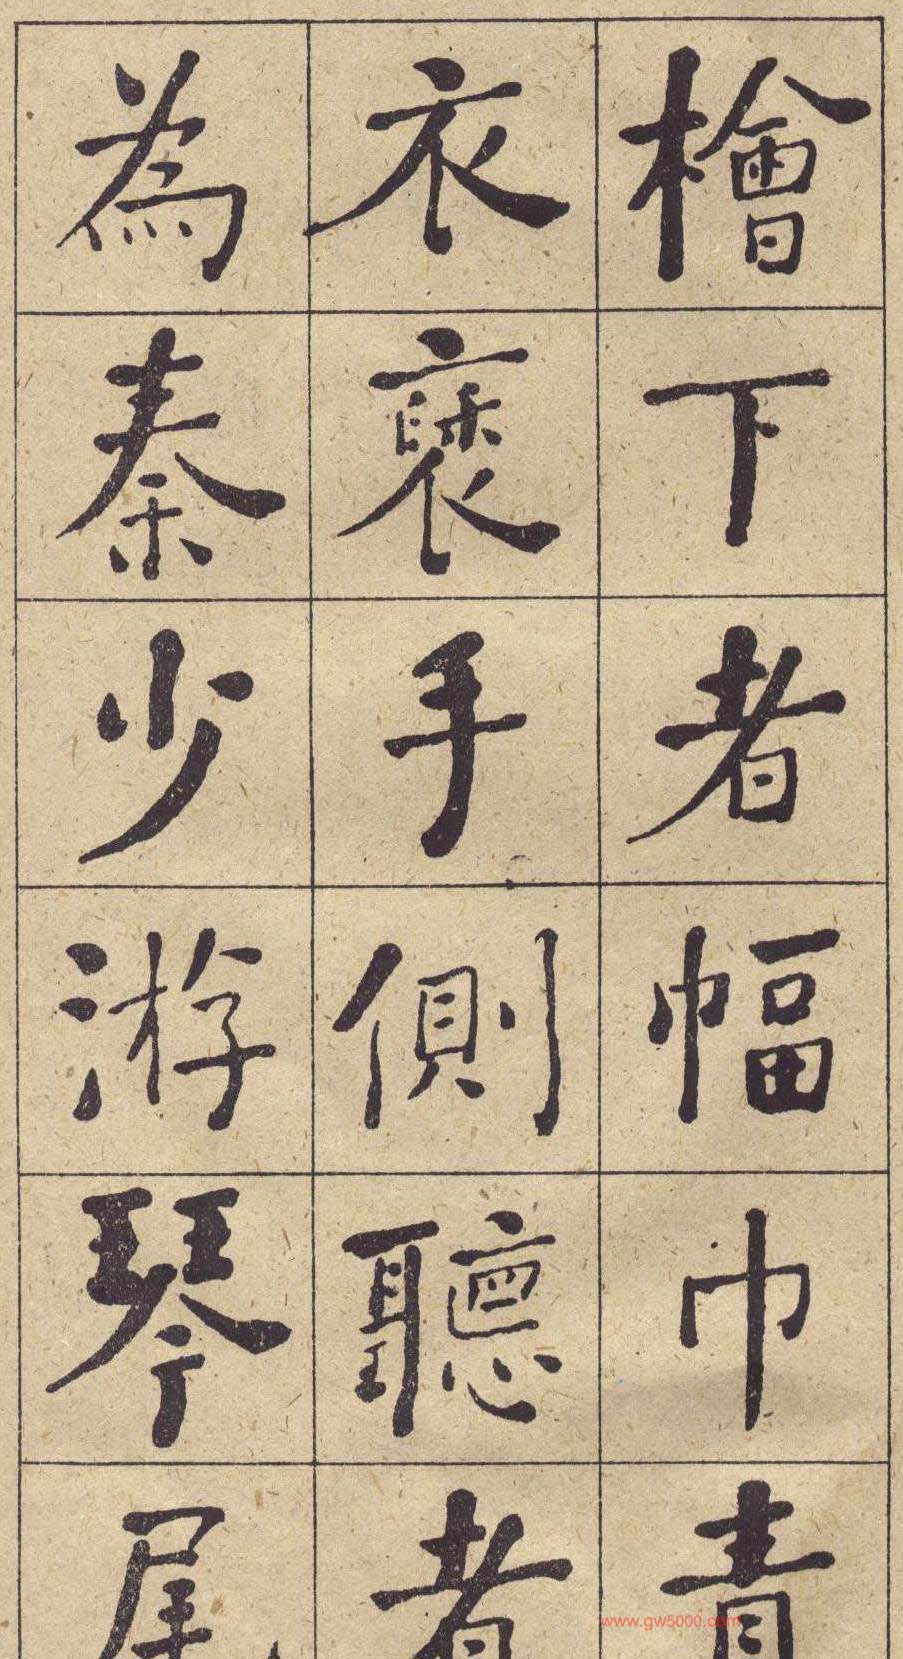 檜下者幅巾青
衣褎手側聽者
為秦少游琴尾
www.gw5000.com